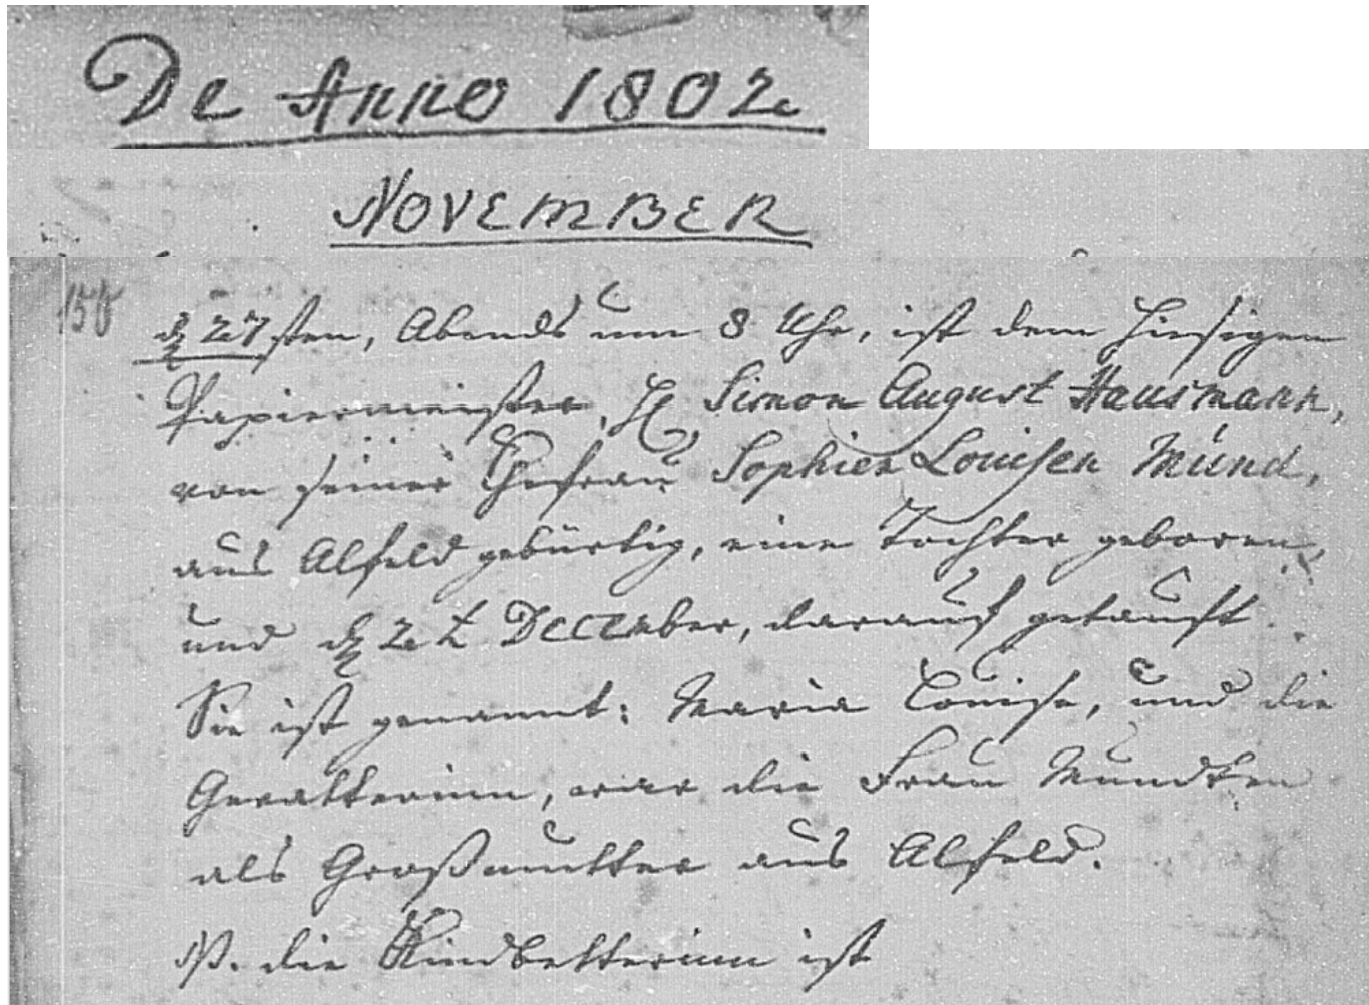 De Anno 1802
NOVEMBER
150
d 27sten, Abends um 8 Uhr, ist dem hiesigen
Papiermeister, H Simon August Hausmann,
von seiner Ehefrau Sophien Louisen Mund,
aus Alfeld gebürtig, eine Tochter geboren,
und d 2t December, darauf getauft.
Sie ist genannt: Maria Louise, und die
Gevatterinn, war die Frau Mundten
als Großmutter aus Alfeld.
die Kindbetterinn ist